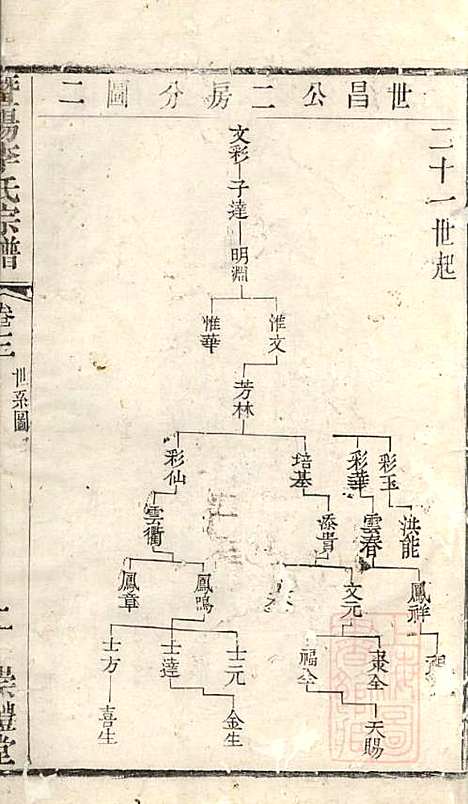 世昌公二房分圖二
二十一世起
文彩
子達
明淵
惟文
惟華
芳林
彩玉
彩華
培基
彩仙
洪能
雲春
添貴
雲衢
鳳祥
文元
鳳鳴
鳳章
東全
福全
士元
士達
士方
天賜
金生
喜生
暨陽李氏宗譜
卷三
世系圖
崇禮堂